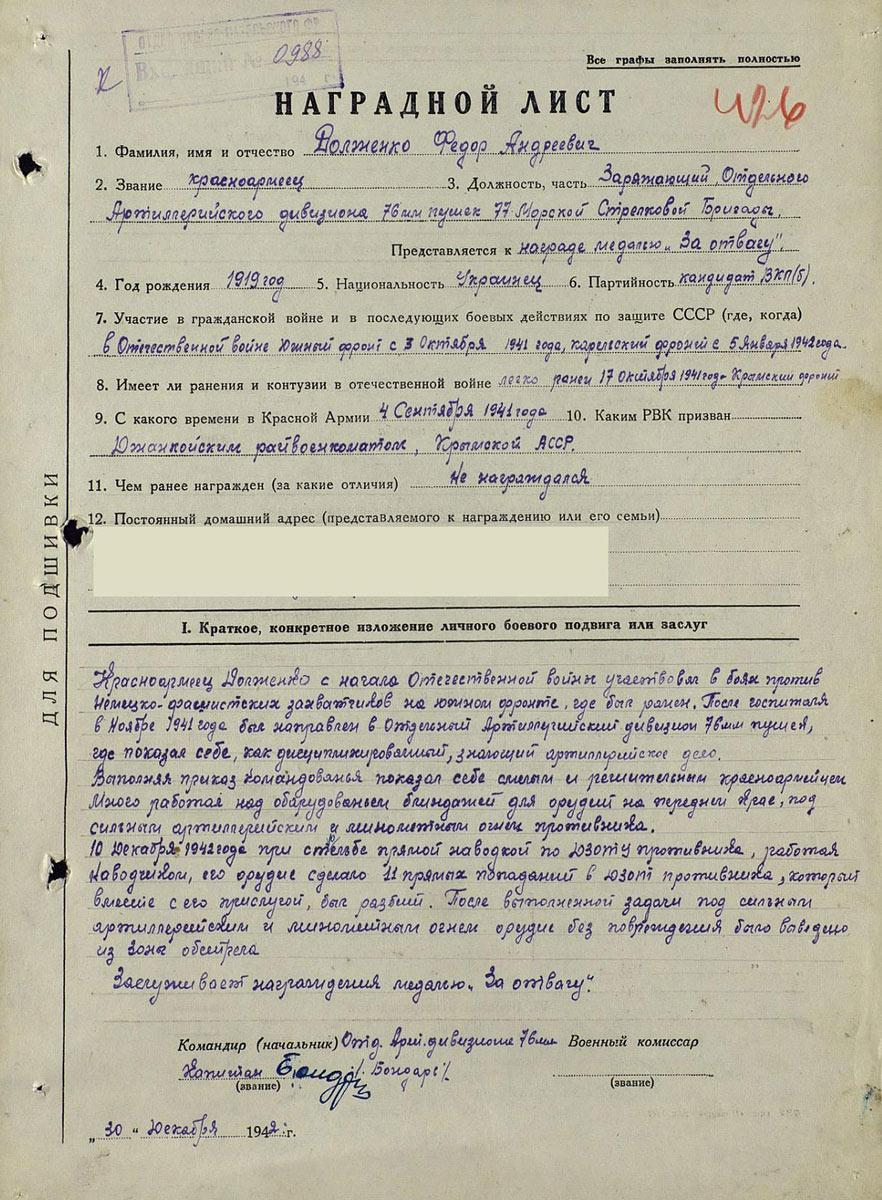 0988
194 г.
Все графы заполнять полностью
НАГРАДНОЙ ЛИСТ
1. Фамилия, имя и отчество Долженко Федор Андреевич
2. Звание красноармеец 3. Должность, часть Заряжающий, Отдельного
Артиллерийского дивизиона 76мм пушек 77 Морской Стрелковой Бригады.
Представляется к награде медалью „За отвагу".
4. Год рождения 1919 год 5. Национальность Украинец 6. Партийность кандидат ВКП(б).
7. Участие в гражданской войне и в последующих боевых действиях по защите СССР (где, когда)
в Отечественной войне Южный фронт с 3 Октября 1941 года, карельский фронт с 5 Января 1942 года.
8. Имеет ли ранения и контузии в отечественной войне легко ранен 17 Октября 1941 года Крымский фронт
9. С какого времени в Красной Армии 4 Сентября 1941 года 10. Каким РВК призван
Джанкойским райвоенкоматом, Крымской АССР.
11. Чем ранее награжден (за какие отличия) Не награждался
12. Постоянный домашний адрес (представляемого к награждению или его семьи)
ДЛЯ ПОДШИВКИ
I. Краткое, конкретное изложение личного боевого подвига или заслуг
Красноармеец Долженко с начала Отечественной войны участвовал в боях против
Немецко-фашистских захватчиков на южном фронте, где был ранен. После госпиталя
в Ноябре 1941 года был направлен в Отдельный Артиллерийский дивизион 76мм пушек,
где показал себе, как дисциплинированный, знающий артиллерийское дело.
Выполняя приказ командованья показал себе смелым и решительным красноармейцем
Много работал над оборудованьем блиндажей для орудий на переднем крае, под
сильным артиллерийским и минометным огнем противника.
10 Декабря 1942 года при стрельбе прямой наводкой по ДЗОТУ противника, работая
Наводчиком, его орудие сделало 11 прямых попаданий в ДЗОТ противника, который
вместе с его прислугой, был разбит. После выполненной задачи под сильным
артиллерийским и минометным огнем орудие без повреждения было выведено
из зоны обстрела
Заслуживает награждения медалью „За отвагу".
Командир (начальник) Отд. Арт. дивизиона 76мм Военный комиссар
Капитан /Бондарь/
(звание) (звание)
„30" Декабря 1942 г.